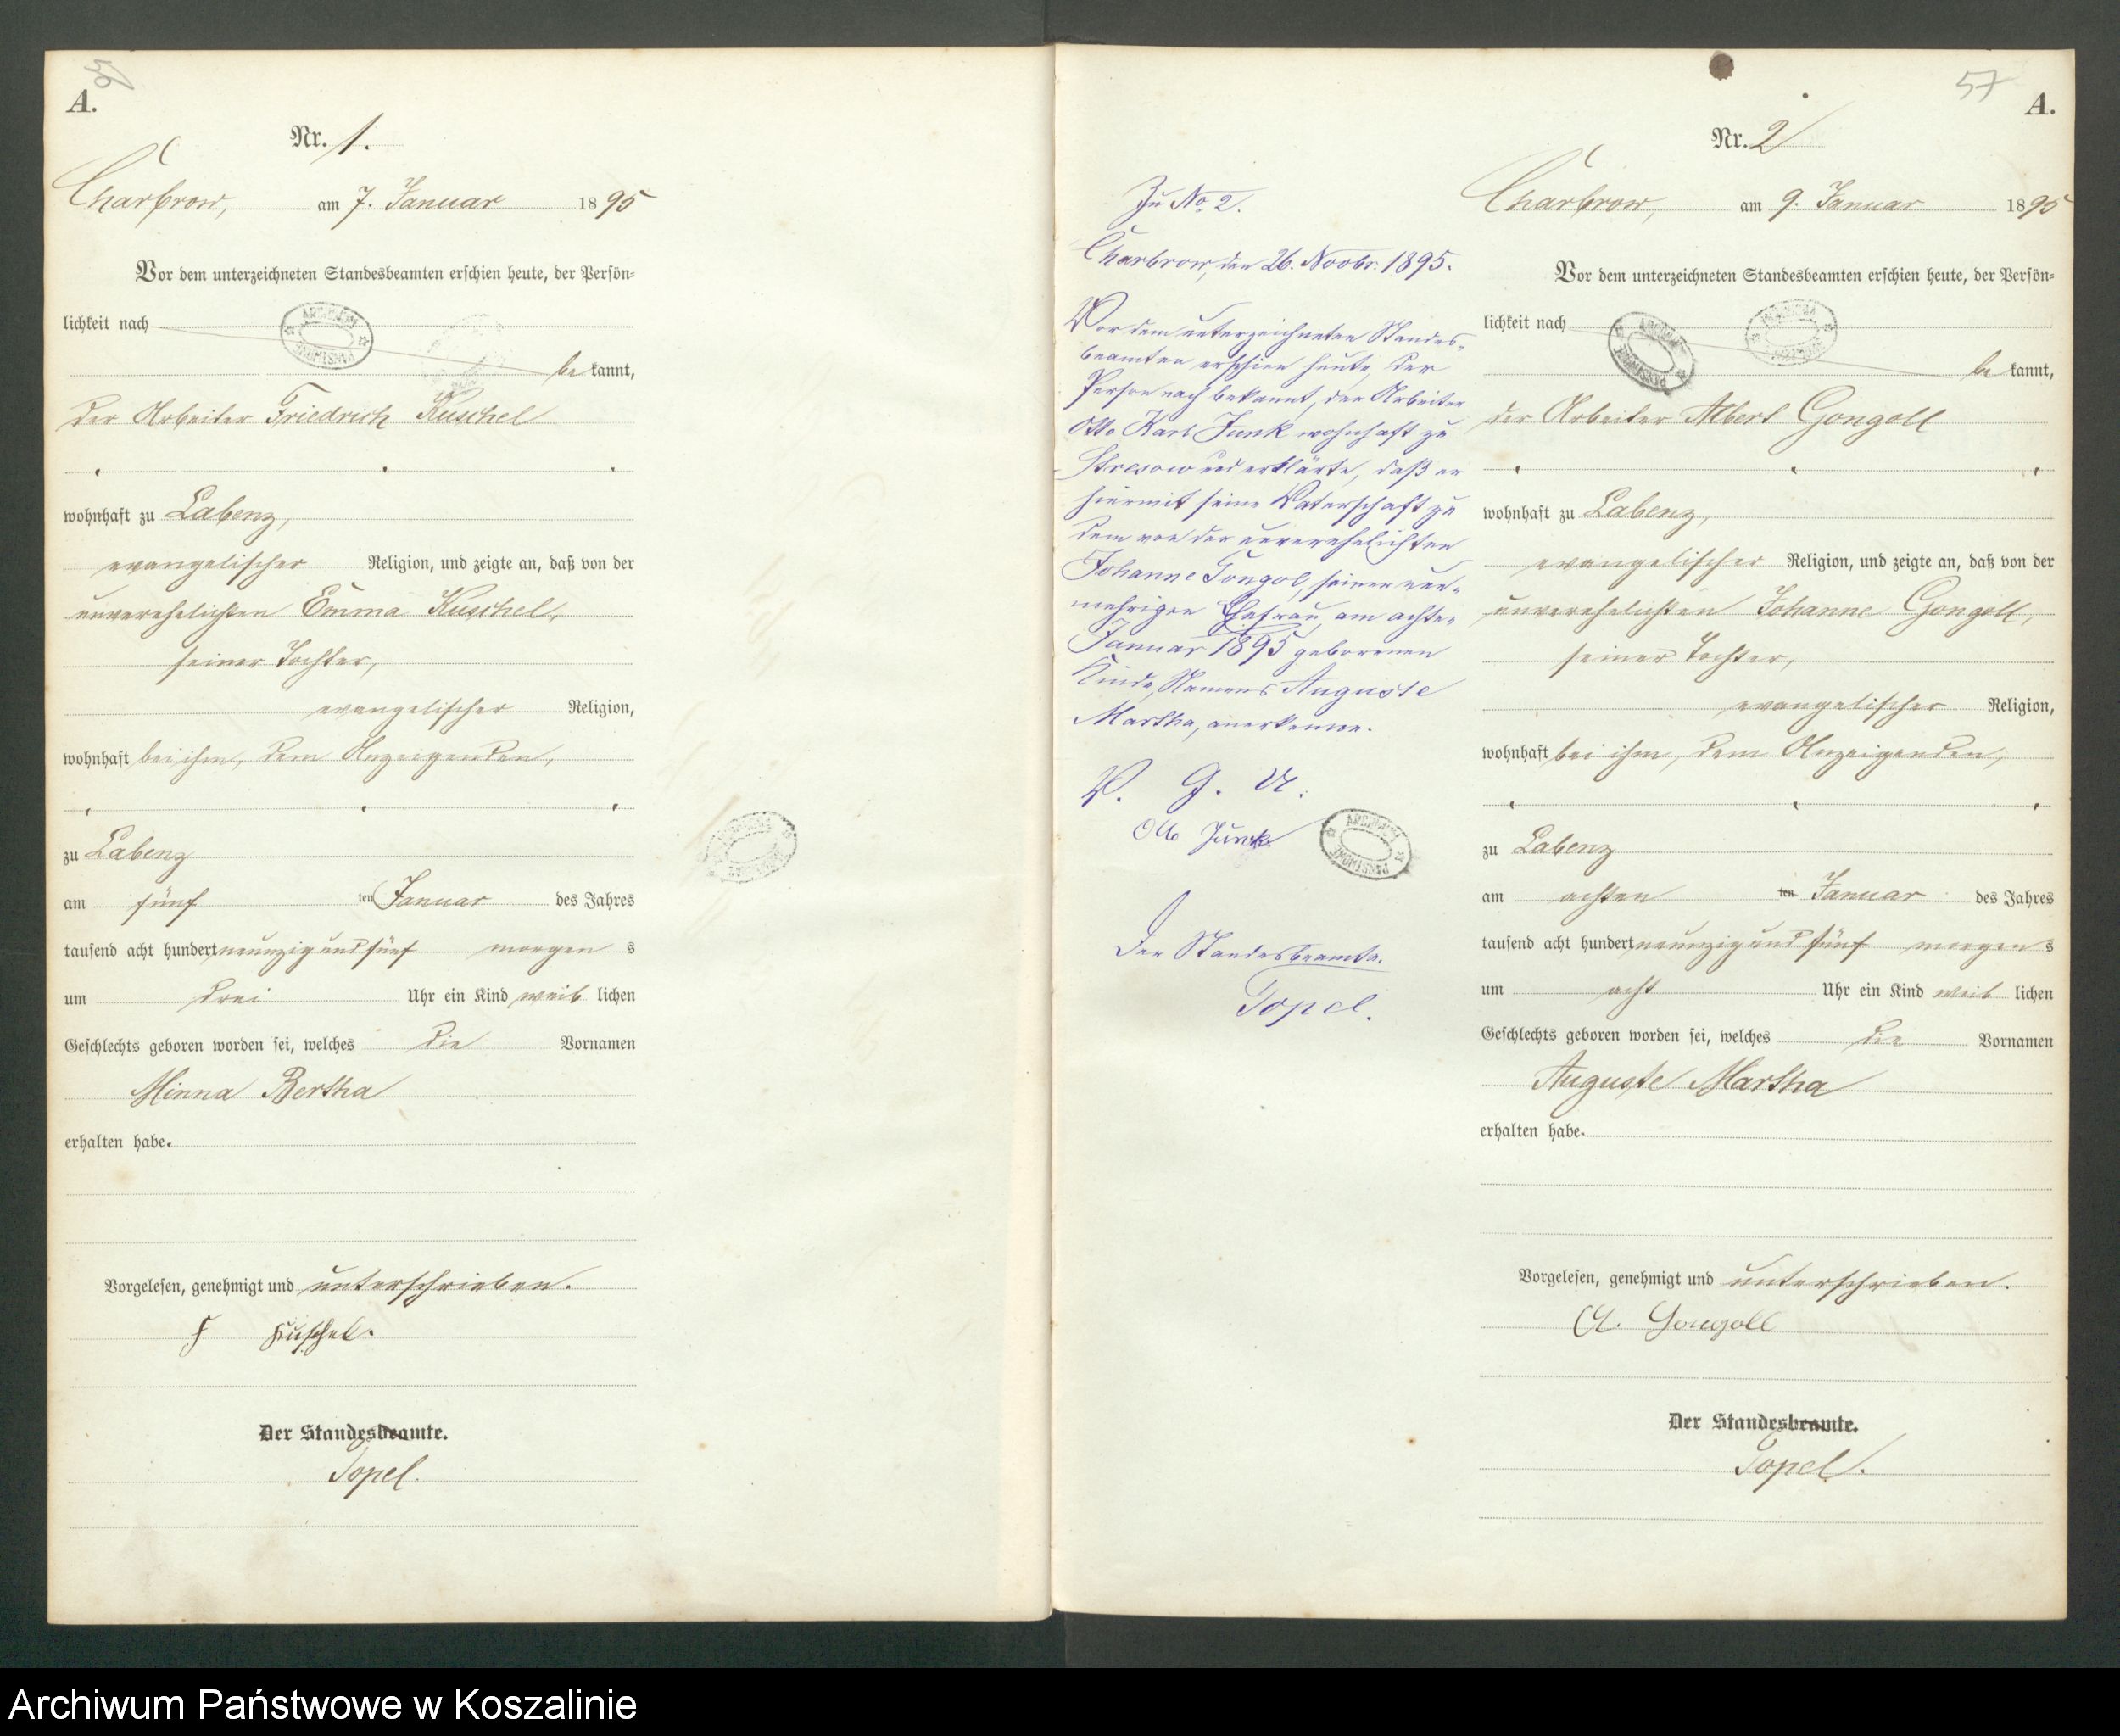 56
A.
Nr. 1.
Charbrow, am 7. Januar 1895
Vor dem unterzeichneten Standesbeamten erschien heute, der Persön=
lichkeit nach
bekannt,
der Arbeiter Friedrich Kuschel
wohnhaft zu Labenz,
evangelischer Religion, und zeigte an, daß von der
unverehelichten Emma Kuschel,
seiner Tochter,
evangelischer Religion,
wohnhaft bei ihm, dem Anzeigenden,
zu Labenz
am fünften Januar des Jahres
tausend acht hundert neunzig und fünf morgens
um drei Uhr ein Kind weiblichen
Geschlechts geboren worden sei, welches die Vornamen
Minna Bertha
erhalten habe.
Vorgelesen, genehmigt und unterschrieben.
F Kuschel.
Der Standesbeamte.
Topel.
Zu No. 2.
Charbrow, den 26. Novbr. 1895.
Vor dem unterzeichneten Standes-
beamten erschien heute, der
Person nach bekannt, der Arbeiter
Otto Karl Junk wohnhaft zu
Stresow und erklärte, daß er
hiermit seine Vaterschaft zu
dem von der unverehelichten
Johanne Gongol, seiner nun-
mehrigen Ehefrau, am achten
Januar 1895 geborenen
Kinde, Namens Auguste
Martha, anerkenne.
V. G. U.
Otto Junk
ARCHIWUM PAŃSTWOWE
Der Standesbeamte.
Topel.
57
A.
Nr. 2
Charbrow, am 9. Januar 1895
Vor dem unterzeichneten Standesbeamten erschien heute, der Persön=
lichkeit nach
bekannt,
der Arbeiter Albert Gongoll
wohnhaft zu Labenz,
evangelischer Religion, und zeigte an, daß von der
unverehelichten Johanne Gongoll,
seiner Tochter,
evangelischer Religion,
wohnhaft bei ihm, dem Anzeigenden,
zu Labenz
am achten ten Januar des Jahres
tausend acht hundert neunzig und fünf morgens
um acht Uhr ein Kind weiblichen
Geschlechts geboren worden sei, welches die Vornamen
Auguste Martha
erhalten habe.
Vorgelesen, genehmigt und unterschrieben.
A. Gongoll
Der Standesbeamte.
Topel.
Archiwum Państwowe w Koszalinie